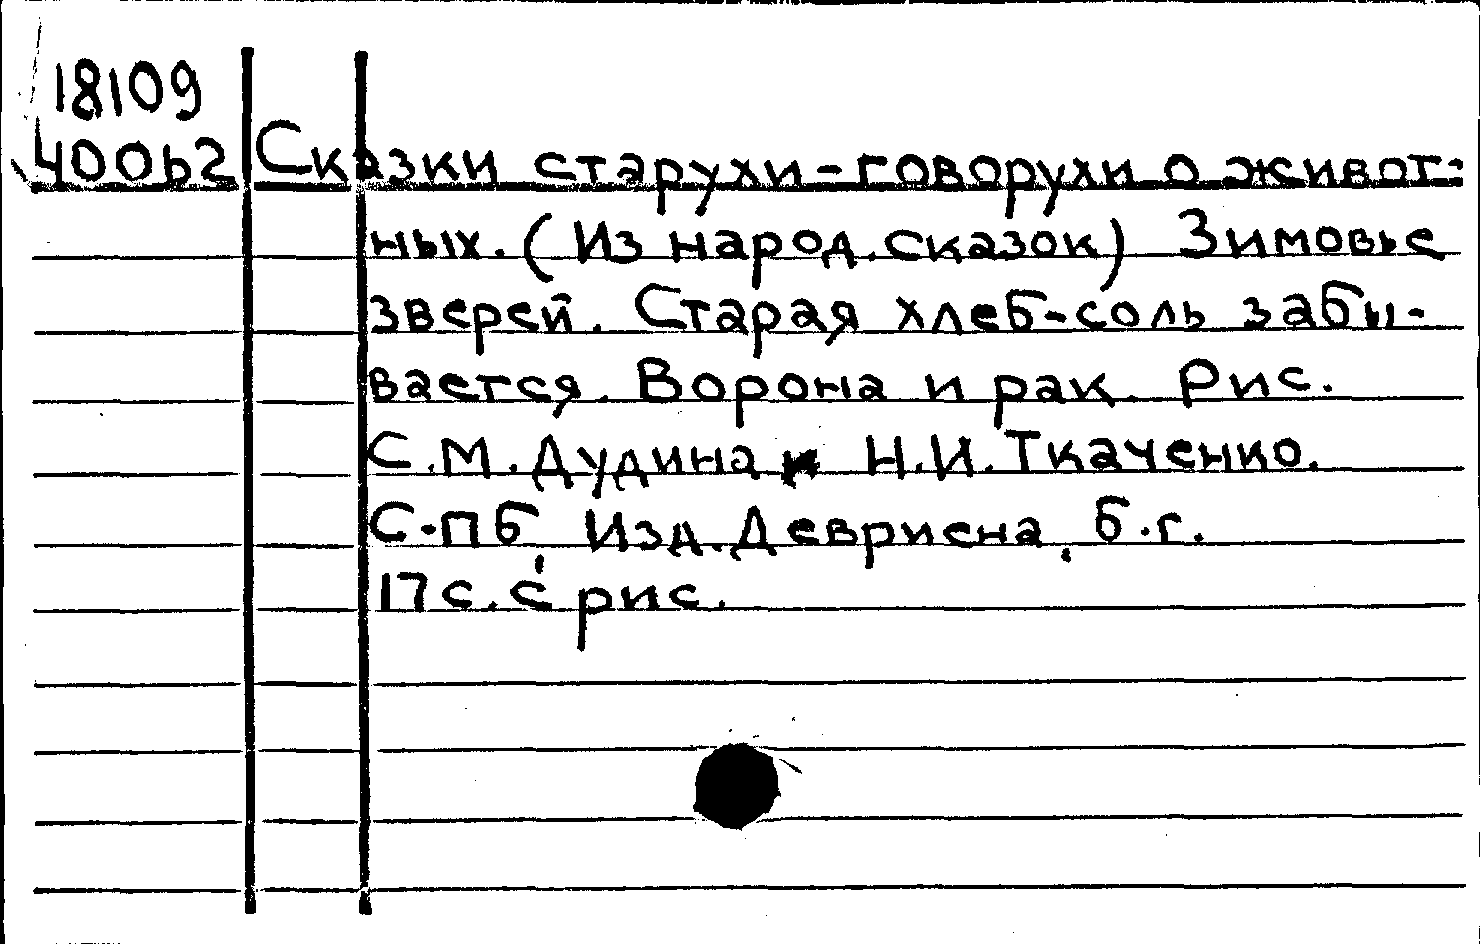 18109
400b2 Сказки старухи-говорухи о живот-
ных. (Из народ. сказок) Зимовье
зверей. Старая хлеб-соль забы-
вается. Ворона и рак. Рис.
С.М. Дудина и Н.И. Ткаченко.
С-пб, Изд. Девриена, б.г.
17 с. с рис.